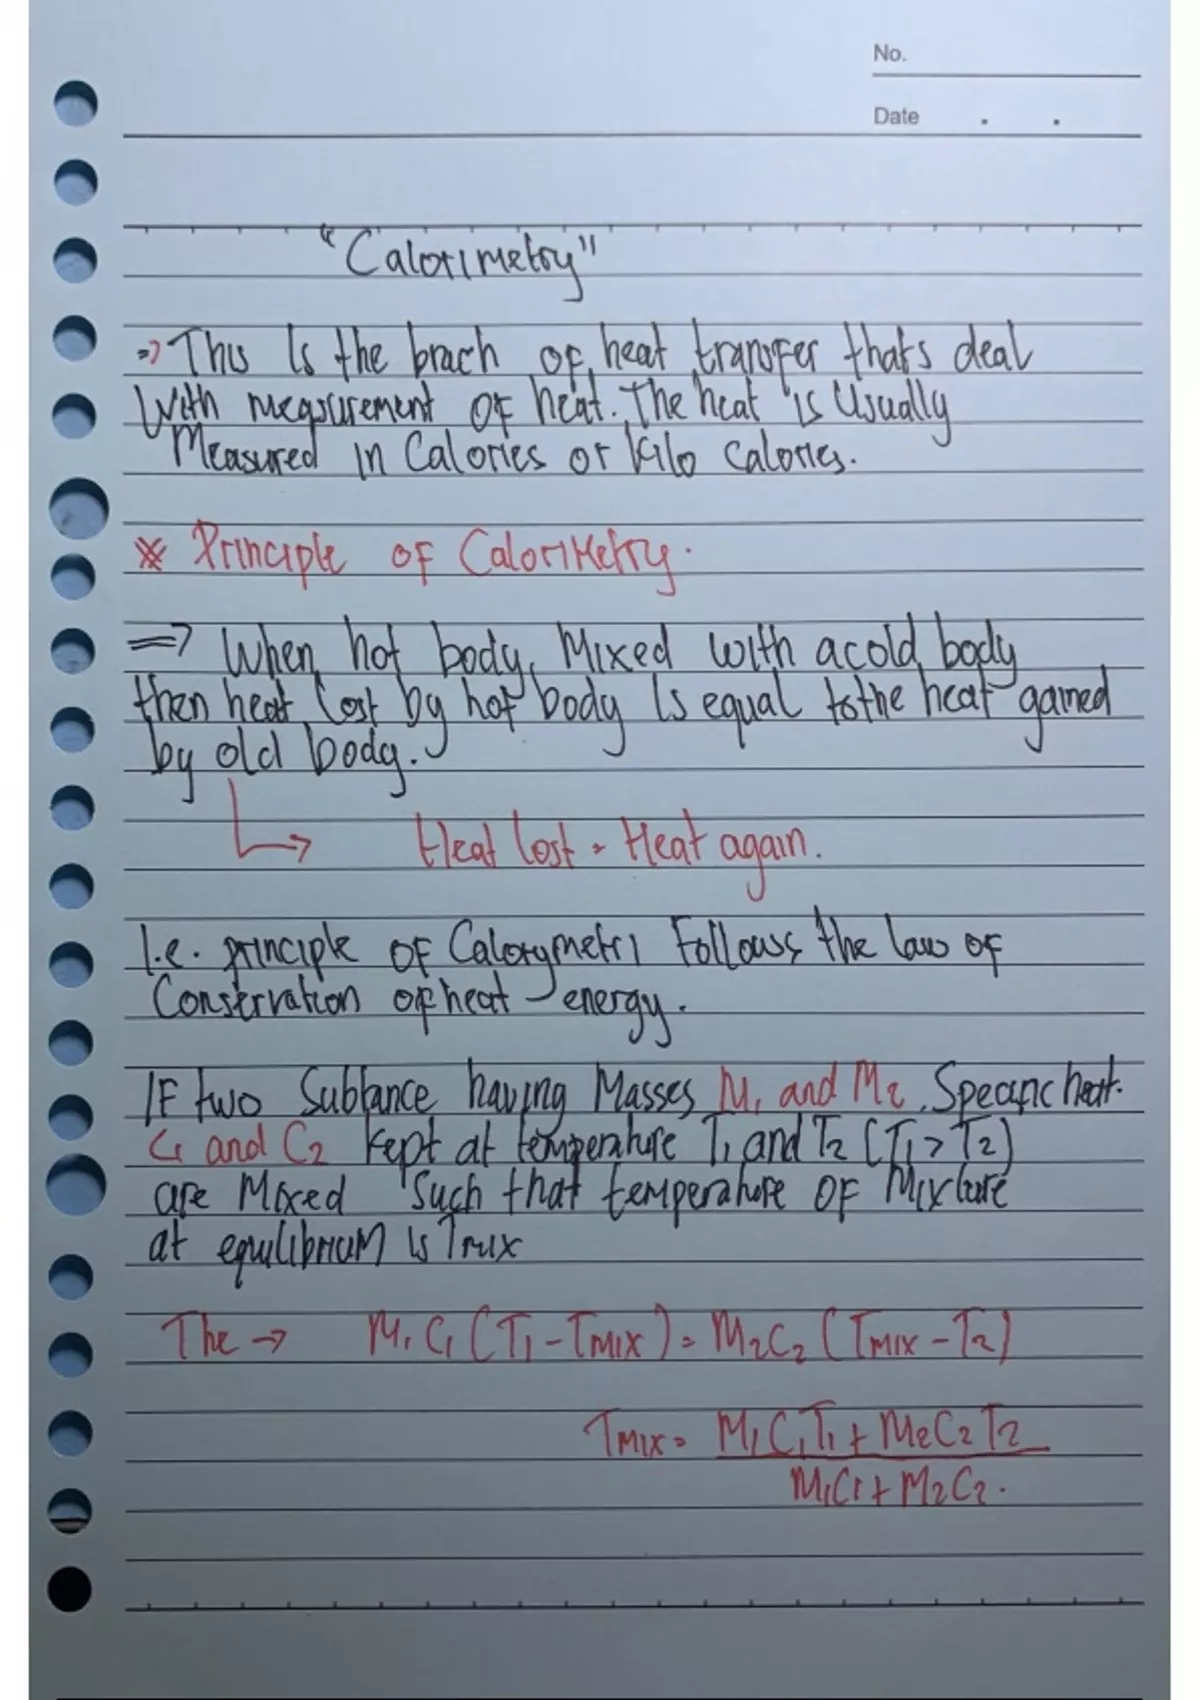 No.
Date . .
"Calorimetry"
=> This Is the brach of heat transfer thats deal
With measurement of heat. The heat is Usually
Measured in Calories or Kilo Calories.
* Principle of Calorimetry.
=> When hot body, Mixed with a cold body
then heat lost by hot body Is equal to the heat gained
by old body.
→ Heat lost = Heat again.
I.e. principle of Calorymetri Follows the law of
Conservation of heat energy.
IF two Subtance having Masses M1 and M2. Specific heat.
C1 and C2 Kept at temperature T1 and T2 (T1 > T2)
are Mixed Such that temperature of Mixture
at equilibrium is Tmix
The → M1 C1 (T1 - TMIX) = M2C2 (TMIX - T2)
TMIX = M1C1T1 + M2C2T2
M1C1 + M2C2.